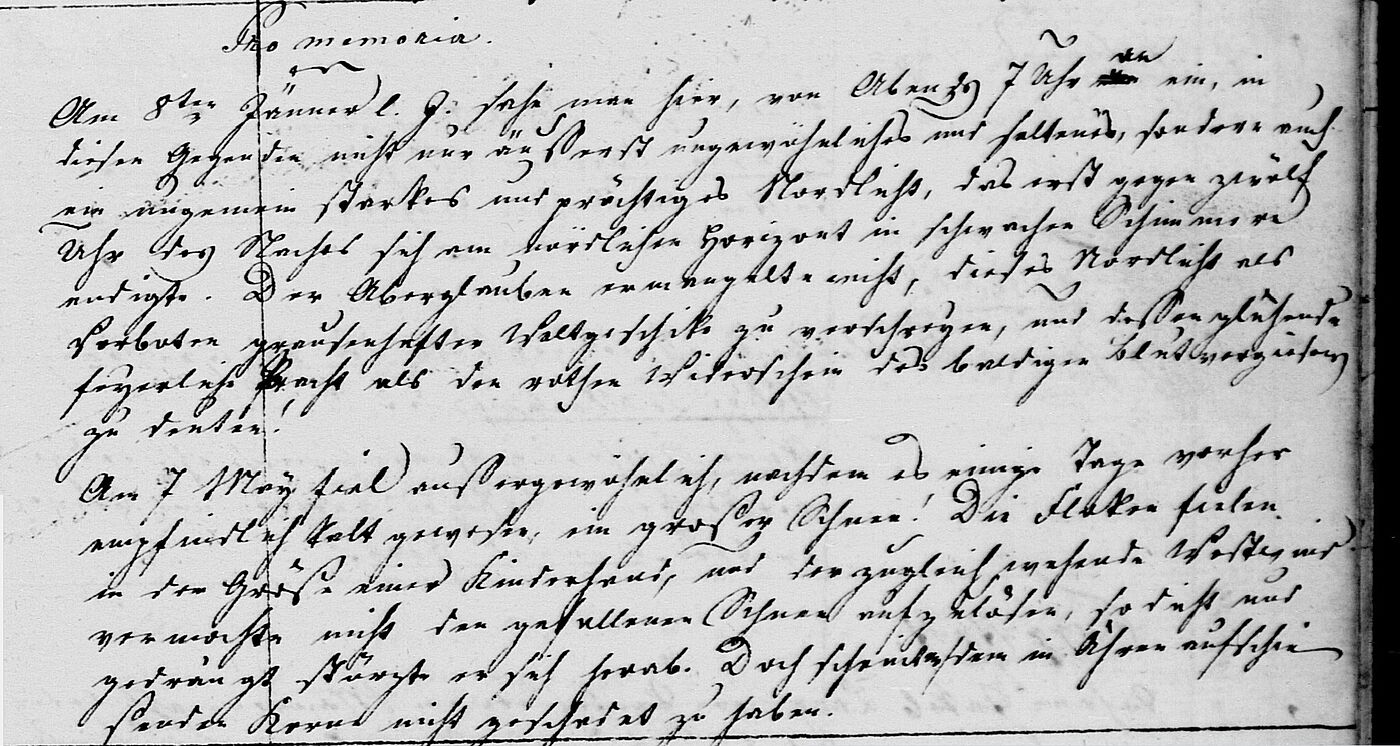 Pro memoria.
Am 8ten Jänner l. J. sahe man hier, von Abends 7 Uhr an ein, in
diesen Gegenden nicht nur äusserst ungewöhnliches und seltenes, sondern auch
ein ungemein starkes und prächtiges Nordlicht, das erst gegen zwölf
Uhr des Nachts sich am nördlichen Horizont in schwachen Schimmern
endigte. Der Aberglauben ermangelte nicht, dieses Nordlicht als
Vorboten grausenhafter Weltgeschike zu verschreyen, und dessen glühende
feyerliche Pracht als den rothen Widerschein des baldigen Blutvergiesens
zu deuten!
Am 7 May fiel aussergewöhnlich, nachdem es einige Tage vorher
empfindlich kalt gewesen, ein großer Schnee! Die Floken fielen
in der Größe einer Kinderhand, und der zugleich wehende Westwind
vermochte nicht den gefallenen Schnee aufzulösen, so dicht und
gedrängt stürzte er sich herab. Doch scheint es dem in Ähren aufschie
senden Korne nicht geschadet zu haben.